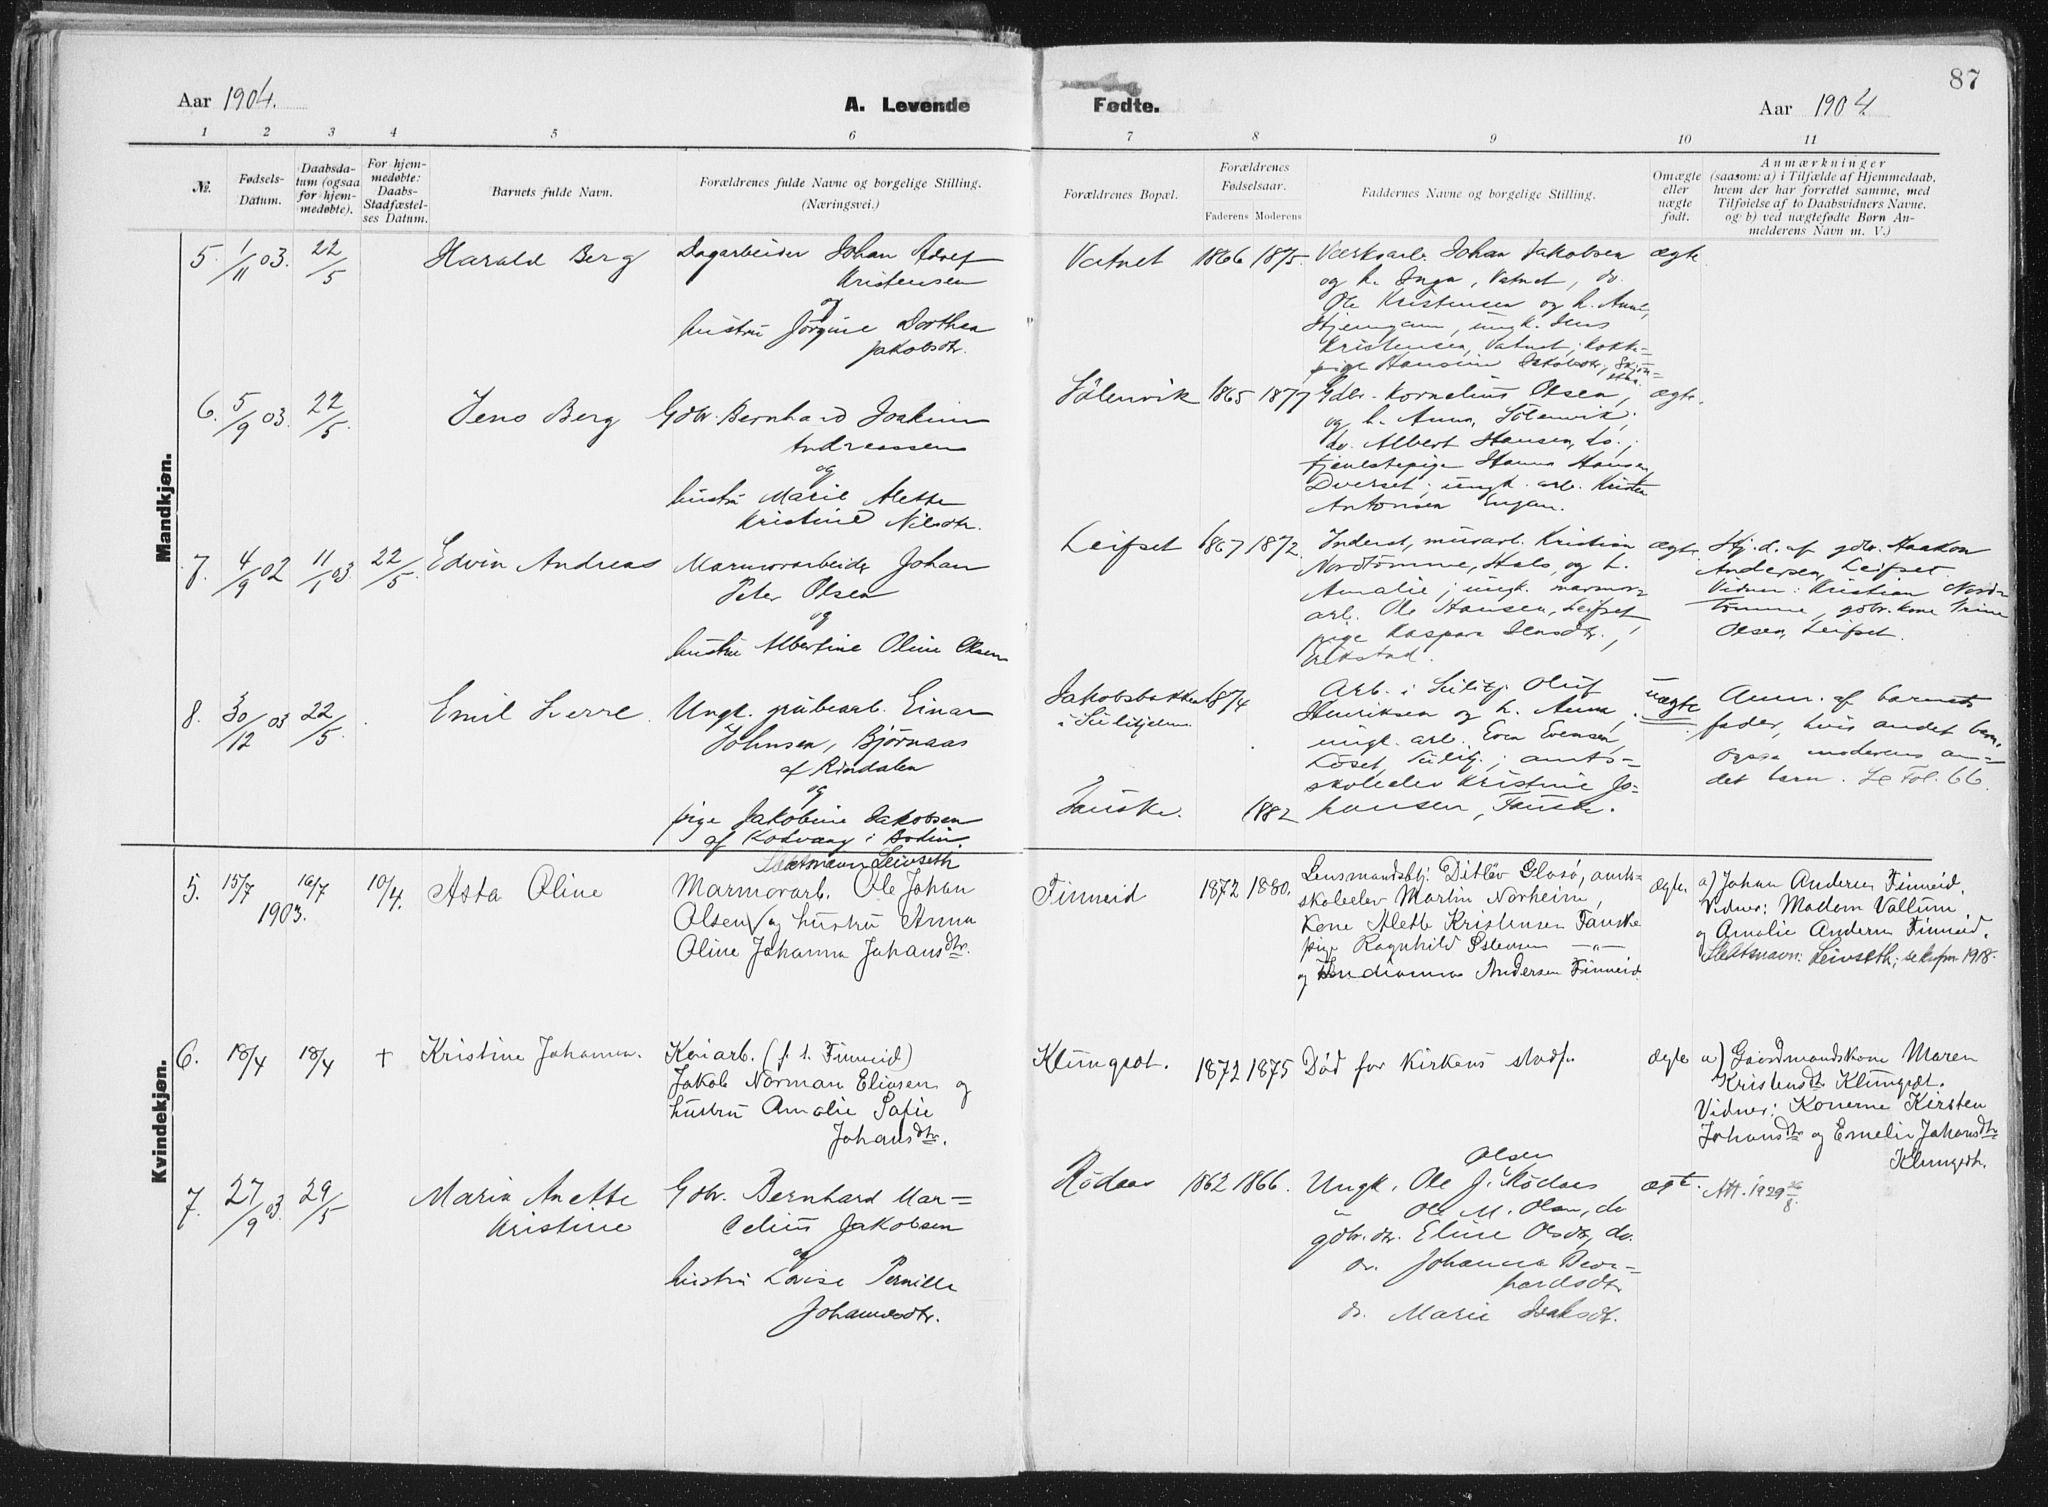 87
Aar 1904. A. Levende Fødte. Aar 1904
1 2 3 4 5 6 7 8 9 10 11
№. Fødsels-Datum. Daabsda-tum (ogsaa for hjem-medøbte). For hjem-medøbte: Daabs-Stadfæstel-ses Datum. Barnets fulde Navn. Forældrenes fulde Navne og borgelige Stilling. (Næringsvei.) Forældrenes Bopæl. Forældrenes Fødselsaar. Faderens Moderens Faddernes Navne og borgelige Stilling. Omægte eller uægte født. Anmærkninger (saasom: a) i Tilfælde af Hjemmedaab, hvem der har forrettet samme, med Tilføielse af to Daabsvidners Navne. og b) ved uægtefødte Børn An-melderens Navn m. V.)
Mandkjøn.
5. 1/11 03. 22/5 Harald Berg
Dagarbeider Johan Adolf
Kristensen
og
hustru Jørgine Dorthea
Jakobsdtr.
Vatnet 1866 1875.
Værksarb. Johan Jakobsen
og h. Inga, Vatnet, do.
Ole Kristensen og h. Anne,
Hjemgam, ungk. Jens
Kristensen, Vatnet; kokke-
pige Hansine Jakobsdtr.,
ægte
6. 5/9 03. 22/5. Jens Berg
Gdbr. Bernhard Joakim
Andreassen
og
hustru Marie Alette
Kristine Nilsdtr.
Sölenvik 1865 1877
Gdbr. Kornelius Olsen,
og h. Anna, Sölenvik;
do. Albert Hansen, do.;
tjenestepige Hanna Hansen,
Dverset; ungk. arb. Krister
Antonsen Engan.
ægte.
7. 4/9 02 11/1 03. 22/5. Edvin Andreas
Marmorarbeider Johan
Peter Olsen
og
hustru Albertine Oline Olsen
Leifset 1867 1872.
Inderst, murarb. Kristian
Nordtømme, Hals, og h.
Amalie; ungk. marmor-
arb. Ole Hansen, Leifset,
pige Kaspara Jensdtr.,
Erikstad.
ægte.
Hj. d. af gdbr. Haakon
Andersen, Leifset.
Vidner: Kristian Nord-
tømme, gdbr. kone Trine
Olsen, Leifset.
8. 30/12 03 22/5. Emil Sverre
Ungk. grubearb. Einar
Johnsen, Bjørnaas
af Rindalen
og
pige Jakobine Jakobsen
af Kodvaag i Bodin.
Jakobsbakken 1874
i Sulitjelma
Fauske. 1882
Arb. i Sulitj. Oluf
Henriksen og h. Anna,
ungk. arb. Even Evensen,
Löset, Sulitj.; amts-
skoleelev Kristine Jo-
hansen, Fauske.
uægte
Anm. af barnets
fader, hvis andet barn,
ogsaa moderens an-
det barn. Se Fol. 66
Kvindekjøn.
Slektsnavn Leivseth
5. 15/7 16/7 1903. 10/4. Asta Oline
Marmorarb. Ole Johan
Olsen og hustru Anna
Oline Johanna Johansdtr.
Finneid 1872 1880.
Lensmandsbtj. Ditlév Glosö, amts-
skoleelev Martin Norheim,
Kone Alette Kristensen Fauske
pige Ragnhild Istensen —"—
og Indianna Andersen Finneid.
ægte.
a) Johan Andersen Finneid.
Vidner: Madam Vallum
og Amalie Andersen Finneid.
Slektsnavn: Leivseth; se kspr 1918.
6. 18/4 18/4 + Kristine Johanna.
Kaiarb. (f. t. Finneid)
Jakob Norman Eliasen og
hustru Amalie Sofie
Johansdtr.
Klungset. 1872 1875
Død før Kirkens stadf.
ægte
a) Gaardmandskone Maren
Kristensdtr. Klungset.
Vidner: Konerne Kirsten
Johansdtr og Emelie Johansdtr
Klungset.
7. 27/9 03. 29/5 Maria Anette
Kristine
Gdbr. Bernhard Mar-
celius Jakobsen
og
hustru Lovise Pernille
Johannesdtr.
Rödaas 1862 1866.
Olsen
Ungk. Ole J. Rödaas
" Ole M. Olsen, do
gdbr. dtr. Eline Olsdtr, do.
do. Johanna Deve-
hardsdtr
do. Marie Isaksdtr.
ægte.
Att. 1929 26/8.